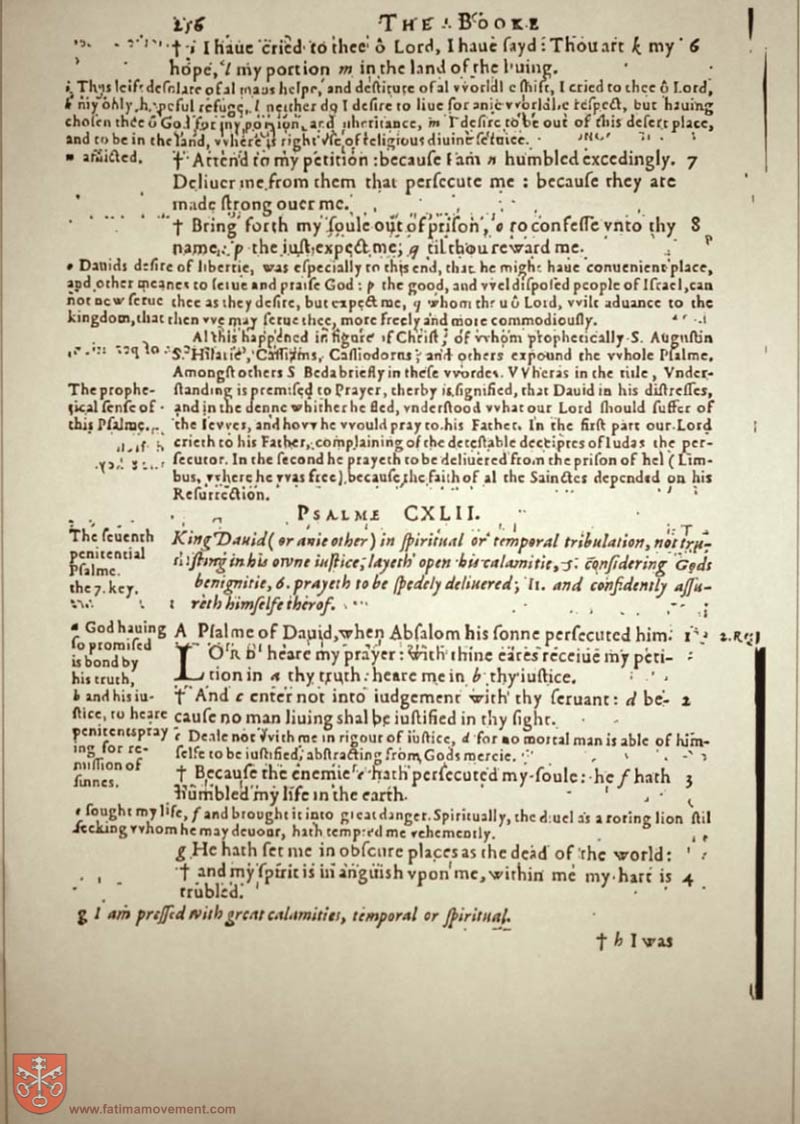 256 THE BOOKE
† i I haue cried to thee ô Lord, I haue sayd: Thou art k my 6
hope, l my portion m in the land of the liuing.
i Thus leift desolate of al mans helpe, and destitute of al vvorldlie shift, I cried to thee ô Lord,
k my only hopeful refuge, l neither do I desire to liue for anie vvorldlie respect, but hauing
chosen thee ô God for my portion and inheritance, m I desire to be out of this desert place,
and to be in the land, vvhere is right vse of religious diuine seruice.
n afflicted.
† Attend to my petition: because I am n humbled excedingly. 7
Deliuer me from them that persecute me: because they are
made strong ouer me.
† Bring forth my soule out of prison, o to confesse vnto thy 8
name, p the iust expect me, q til thou reward me.
o Dauids desire of libertie, was especially to this end, that he might haue conuenient place,
and other meanes to serue and praise God: p the good, and vvel disposed people of Israel, can
not now serue thee as they desire, but expect me, q whom thou ô Lord, vvilt aduance to the
kingdom, that then vve may serue thee, more freely and more commodiously.
Al this happened in figure of Christ, of vvhom prophetically S. Augustin
S. Hilarie, Cassianus, Cassiodorus, and others expound the vvhole Psalme.
Amongst others S Beda briefly in these vvordes. VVheras in the title, Vnder-
standing is premised to Prayer, therby is signified, that Dauid in his distresses,
and in the denne whither he fled, vnderstood vvhat our Lord should suffer of
the Ievves, and hovv he vvould pray to his Father. In the first part our Lord
crieth to his Father, complaining of the detestable deceiptes of Iudas the per-
secutor. In the second he prayeth to be deliuered from the prison of hel (Lim-
bus, vvhere he vvas free) because the faith of al the Sainctes depended on his
Resurrection.
The prophe-
tical sense of
this Psalme.
PSALME CXLII.
The seuenth
penitential
Psalme.
the 7. key.
King Dauid (or anie other) in spiritual or temporal tribulation, not tru-
sting in his owne iustice, layeth open his calamitie, 5. considering Gods
benignitie, 6. prayeth to be spedely deliuered; 11. and confidently assu-
reth himselfe therof.
a God hauing
so promised
is bond by
his truth,
b and his iu-
stice, to heare
penitents pray
ing for re-
mission of
sinnes.
A Psalme of Dauid, when Absalom his sonne persecuted him. 1 2. Reg
LORD heare my prayer: with thine eares receiue my peti-
tion in a thy truth: heare me in b thy iustice.
† And c enter not into iudgement with thy seruant: d be- 2
cause no man liuing shal be iustified in thy sight.
c Deale not vvith me in rigour of iustice, d for no mortal man is able of him-
selfe to be iustified, abstracting from Gods mercie.
† Because the enemie e hath persecuted my soule: he f hath 3
humbled my life in the earth.
e sought my life, f and brought it into great danger. Spiritually, the diuel as a roring lion stil
seeking vvhom he may deuour, hath tempted me vehemently.
g He hath set me in obscure places as the dead of the world:
† and my spirit is in anguish vpon me, within me my hart is 4
trubled.
g I am pressed with great calamities, temporal or spiritual.
† h I was
www.fatimamovement.com